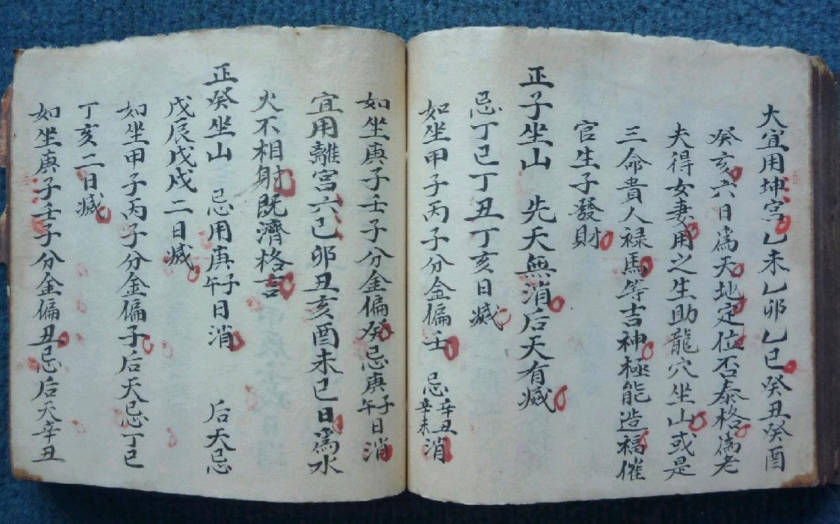 大宜用坤宮乙未乙卯乙巳癸丑癸酉
癸亥六日爲天地定位否泰格爲老
夫得女妻用之生助龍穴坐山或是
三命貴人禄馬等吉神極能造福催
官生子發財
正子坐山 先天無消后天有滅
忌丁巳丁丑丁亥日滅
如坐甲子丙子分金偏壬 忌辛丑辛未消
如坐庚子壬子分金偏癸忌庚子庚午日消
宜用離宮六己卯丑亥酉未巳日爲水
火不相射既濟格吉
正癸坐山 忌用庚子庚午日消 后天忌
戊辰戊戌二日滅
如坐甲子丙子分金偏子后天忌丁巳
丁亥二日滅
如坐庚子壬子分金偏丑忌后天辛丑